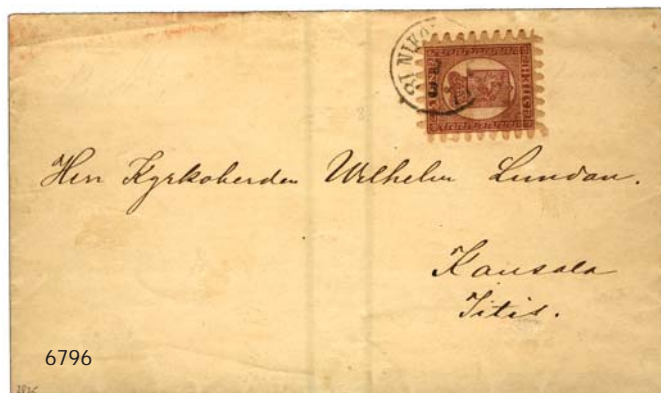 Herr Kyrkoherden Wilhelm Lundan.
Kausala
Itis.
6796